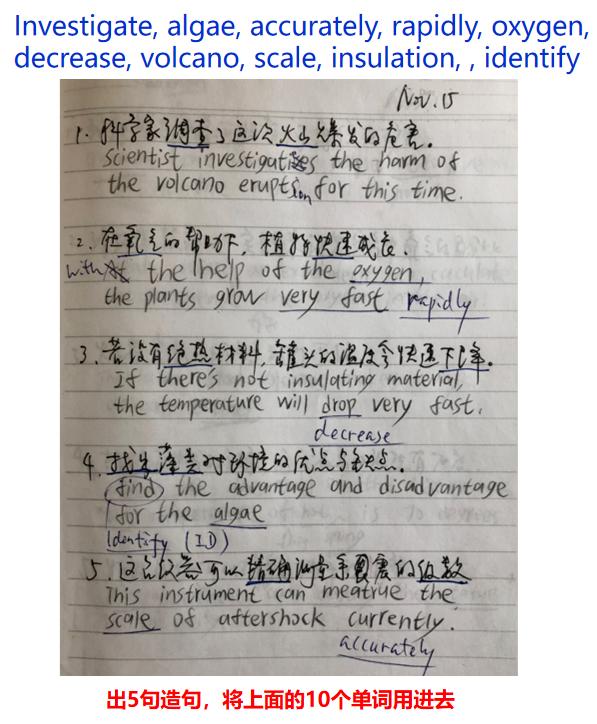 Investigate, algae, accurately, rapidly, oxygen,
decrease, volcano, scale, insulation, , identify
Nov. 15
1. 科学家调查了这次火山爆发的危害。
scientist investigates the harm of
the volcano eruption for this time.
2. 在氧气的帮助下，植物快速成长。
with the help of the oxygen,
the plants grow very fast rapidly
3. 若没有绝热材料，罐头的温度会快速下降。
If there's not insulating material,
the temperature will drop very fast.
decrease
4. 找出藻类对环境的优点与缺点。
find the advantage and disadvantage
for the algae
Identify (ID)
5. 这台仪器可以精确测量余震的级数
This instrument can meatrue the
scale of aftershock currently.
accurately
出5句造句，将上面的10个单词用进去